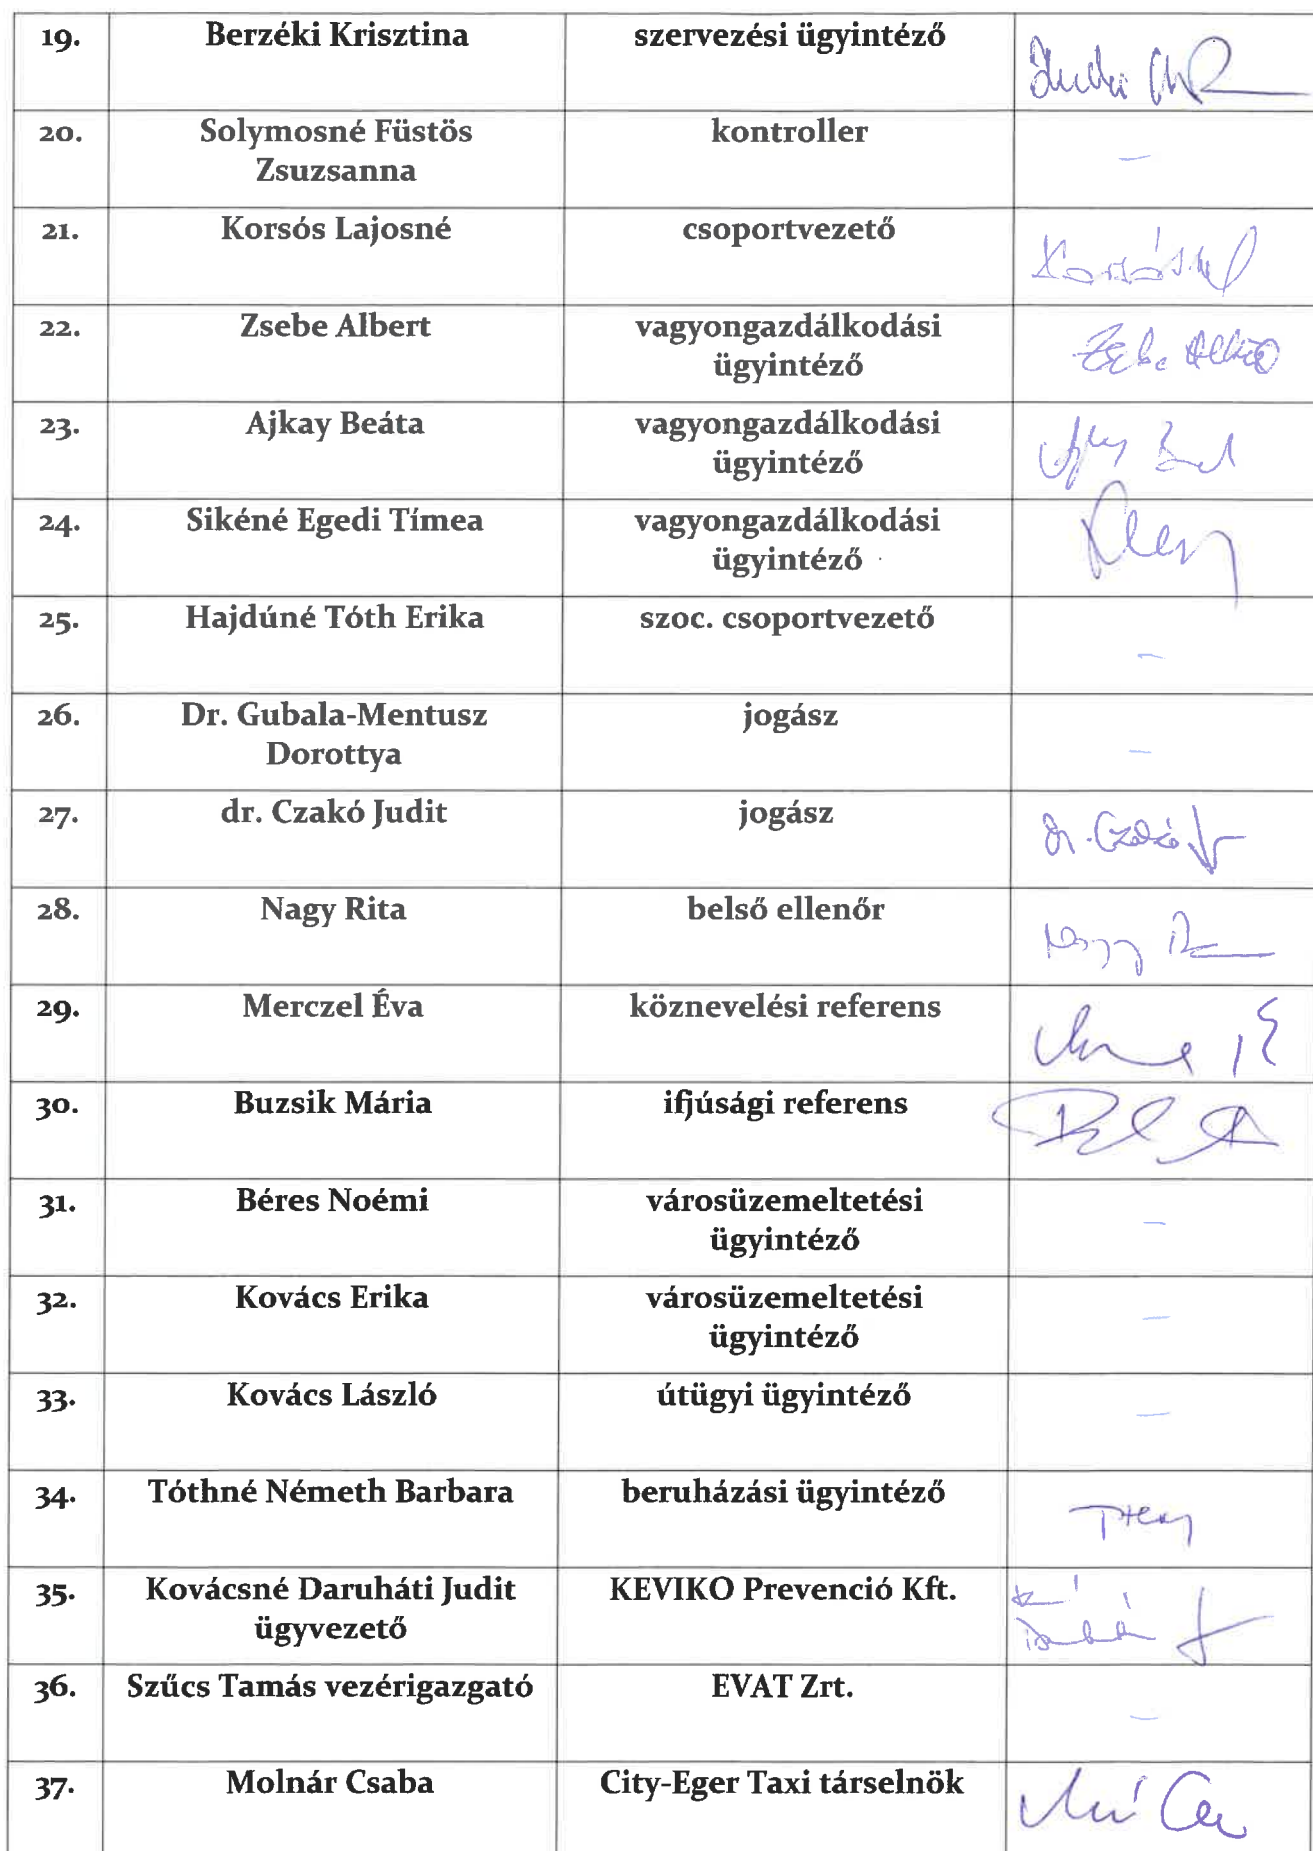 19. Berzéki Krisztina szervezési ügyintéző
20. Solymosné Füstös kontroller –
Zsuzsanna
21. Korsós Lajosné csoportvezető
22. Zsebe Albert vagyongazdálkodási
ügyintéző
23. Ajkay Beáta vagyongazdálkodási
ügyintéző
24. Sikéné Egedi Tímea vagyongazdálkodási
ügyintéző
25. Hajdúné Tóth Erika szoc. csoportvezető –
26. Dr. Gubala-Mentusz jogász –
Dorottya
27. dr. Czakó Judit jogász
28. Nagy Rita belső ellenőr
29. Merczel Éva köznevelési referens
30. Buzsik Mária ifjúsági referens
31. Béres Noémi városüzemeltetési –
ügyintéző
32. Kovács Erika városüzemeltetési –
ügyintéző
33. Kovács László útügyi ügyintéző –
34. Tóthné Németh Barbara beruházási ügyintéző
35. Kovácsné Daruháti Judit KEVIKO Prevenció Kft.
ügyvezető
36. Szűcs Tamás vezérigazgató EVAT Zrt. –
37. Molnár Csaba City-Eger Taxi társelnök